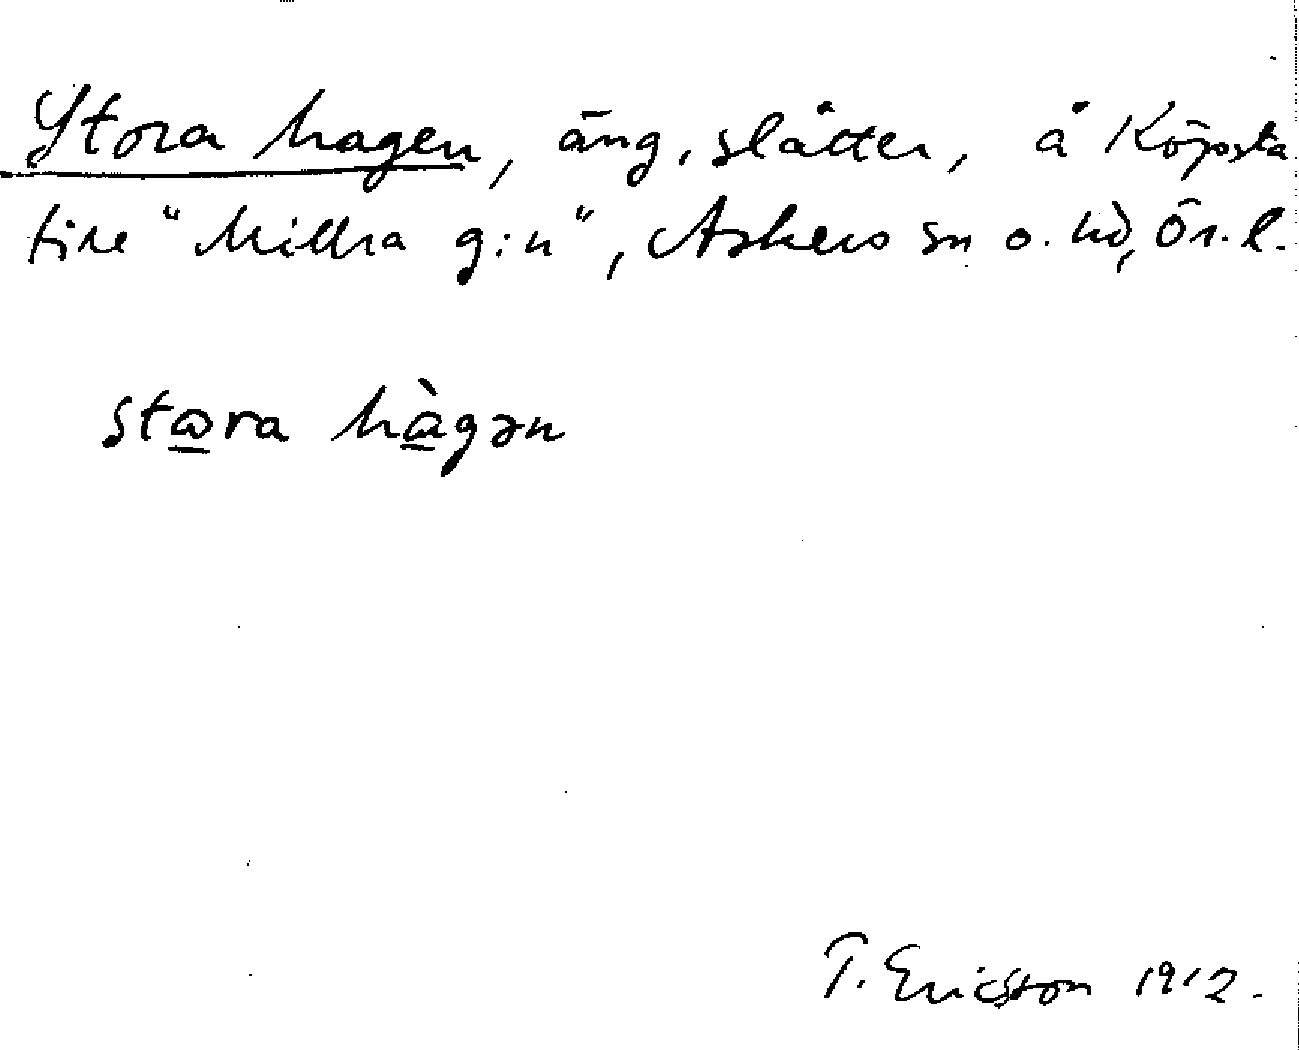 Stora hagen, äng, slåtter, å Köpsta
fine "Millra g:n", Askers sn o. hd, Ör. l.
stⱺra hàgən
T. Ericsson 1912.